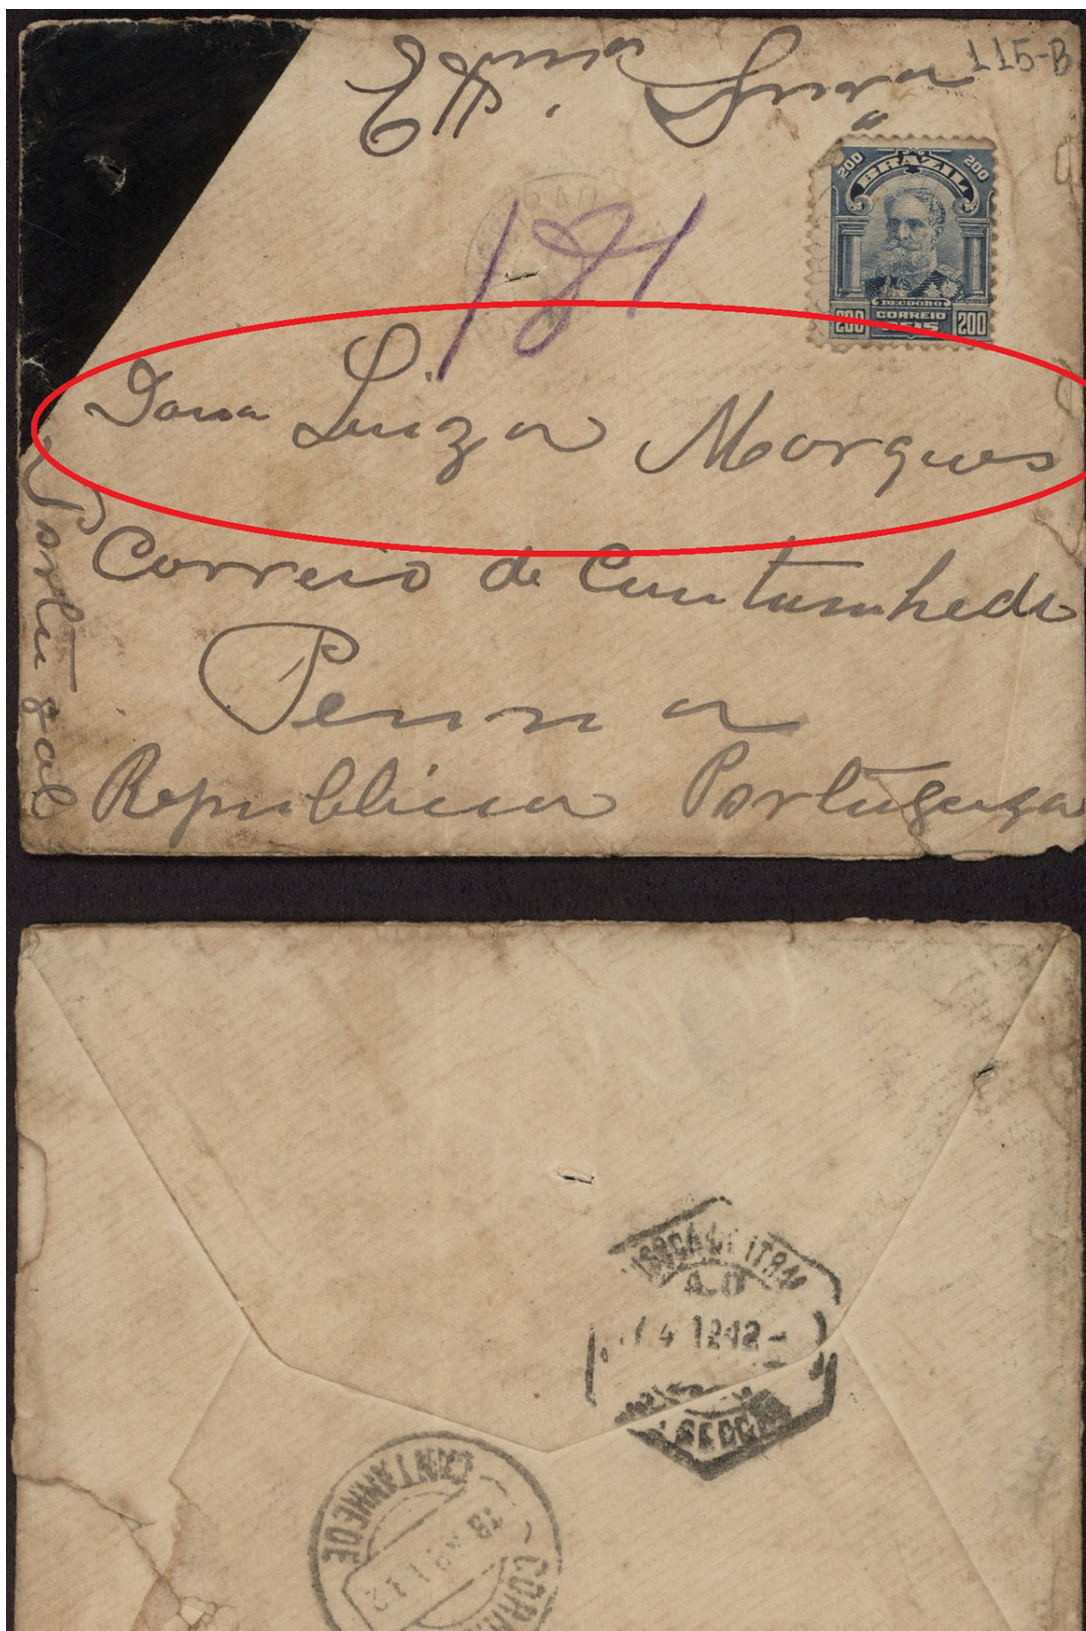 115-B
200 BRAZIL 200
DEODORO
200 CORREIO 200
REIS
181
Dona Luiza Marques
Correio de Cantanhede
Penna
Republica Portugueza
Portugal
4 1912
CANTANHEDE